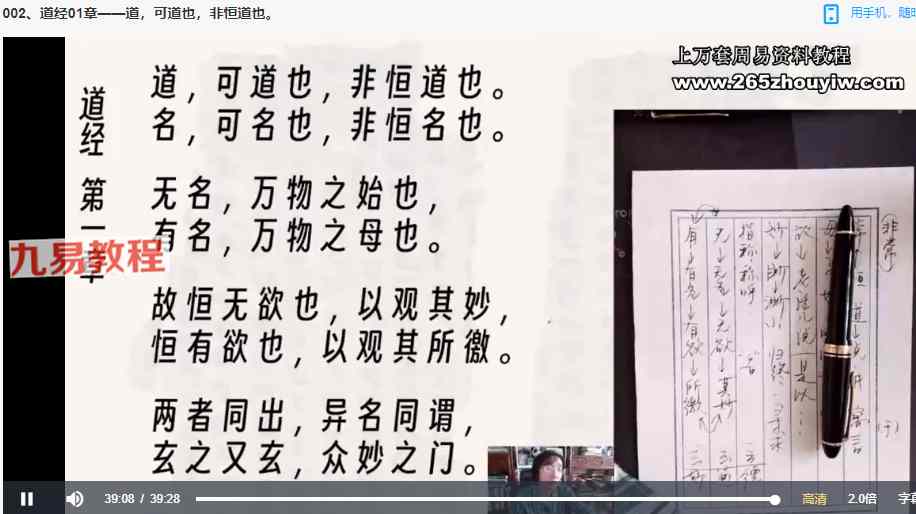 002、道经01章——道，可道也，非恒道也。
用手机、随时
上万套周易资料教程
www.265zhouyiw.com
道经 第一章
道，可道也，非恒道也。
名，可名也，非恒名也。
无名，万物之始也，
有名，万物之母也。
故恒无欲也，以观其妙，
恒有欲也，以观其所徼。
两者同出，异名同谓，
玄之又玄，众妙之门。
九易教程
非常
指称 称呼
无→无名→无欲→其妙
有→有名→有欲→所徼
39:08 / 39:28
高清
2.0倍
字幕